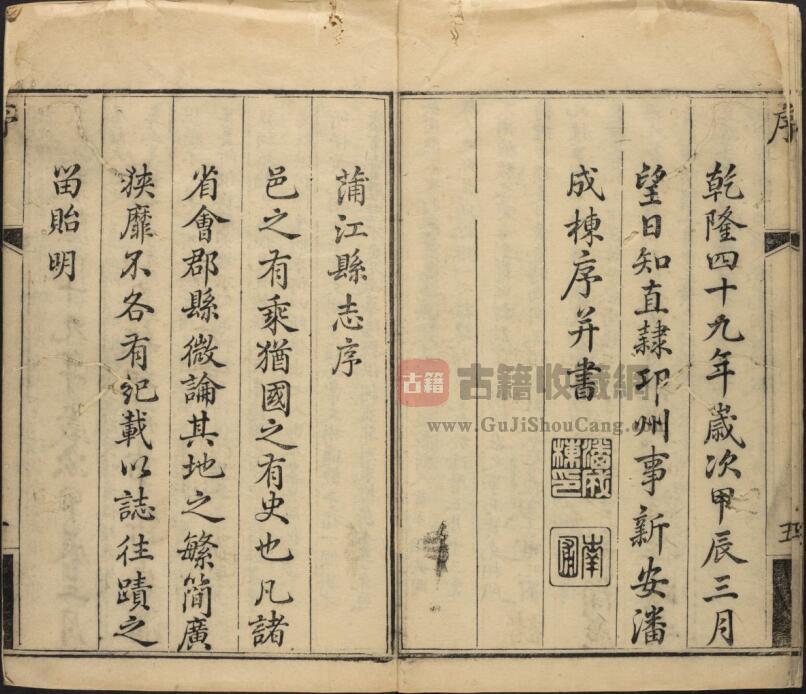 序
乾隆四十九年歲次甲辰三月
望日知直隸邛州事新安潘
成棟序并書
潘成棟印
南圃
五
蒲江縣志序
邑之有乘猶國之有史也凡諸
省會郡縣微論其地之繁簡廣
狹靡不各有紀載以誌往蹟之
留貽明
序
一
古籍
古籍收藏網
www.GuJiShouCang.com